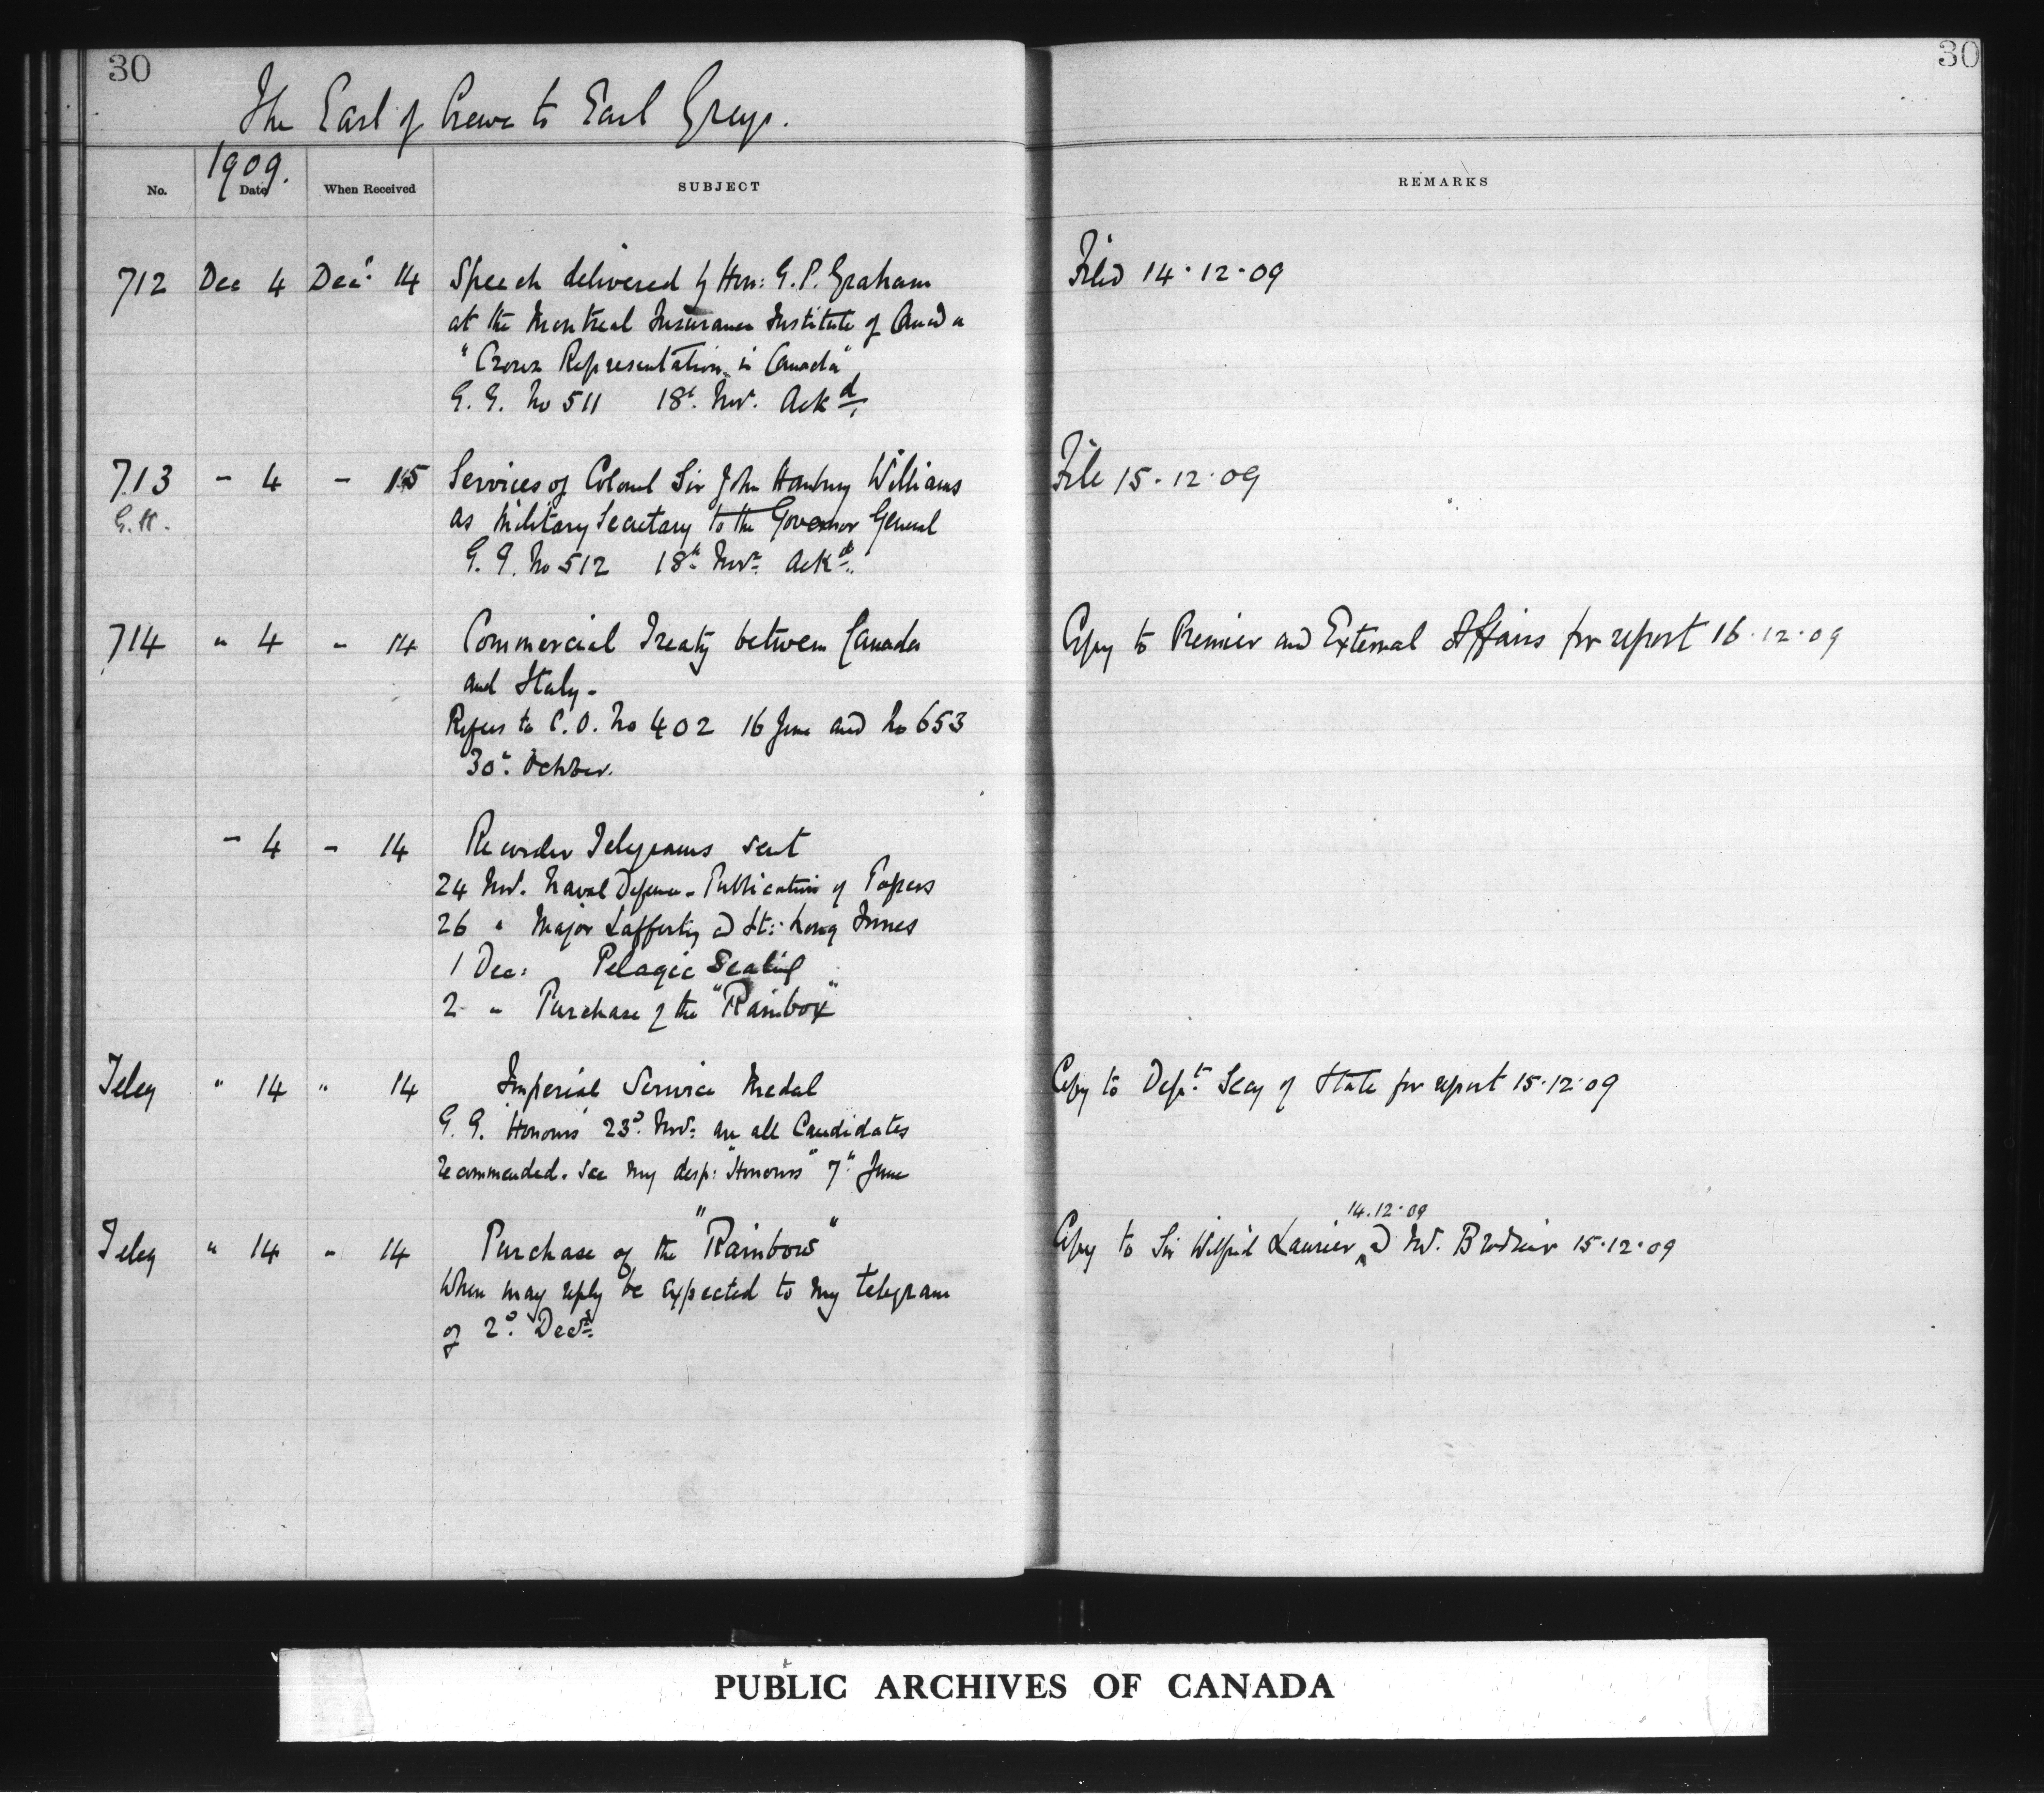 30
30
The Earl of Crewe to Earl Grey.
1909.
No. Date When Received SUBJECT REMARKS
712 Dec 4 Decr 14 Speech delivered by Hon: G. P. Graham Filed 14.12.09
at the Montreal Insurance Institute of Canada
"Crown Representation in Canada"
G. G. No 511 18th Nov. Ackd.
713 - 4 - 15 Services of Colonel Sir John Hanbury Williams File 15.12.09
G.H. as Military Secretary to the Governor General
G. G. No 512 18th Novr Ackd.
714 " 4 - 14 Commercial Treaty between Canada Copy to Premier and External Affairs for report 16.12.09
and Italy -
Refers to C. O. No 402 16 June and No 653
30th October.
- 4 - 14 Recorder Telegrams sent
24 Nov. Naval Defence - Publication of Papers
26 " Major Lafferty & Lt: Long Innes
1 Dec: Pelagic Sealing
2 " Purchase of the "Rainbow"
Teleg " 14 " 14 Imperial Service Medal Copy to Dept. Secy of State for report 15.12.09
G. G. "Honours" 23d. Nov: are all Candidates
recommended. See my desp: "Honours" 7th June
14.12.09
Teleg " 14 " 14 Purchase of the "Rainbow" Copy to Sir Wilfrid Laurier & Mr. Brodeur 15.12.09
When may reply be expected to my telegram
of 2d. Decr.
PUBLIC ARCHIVES OF CANADA